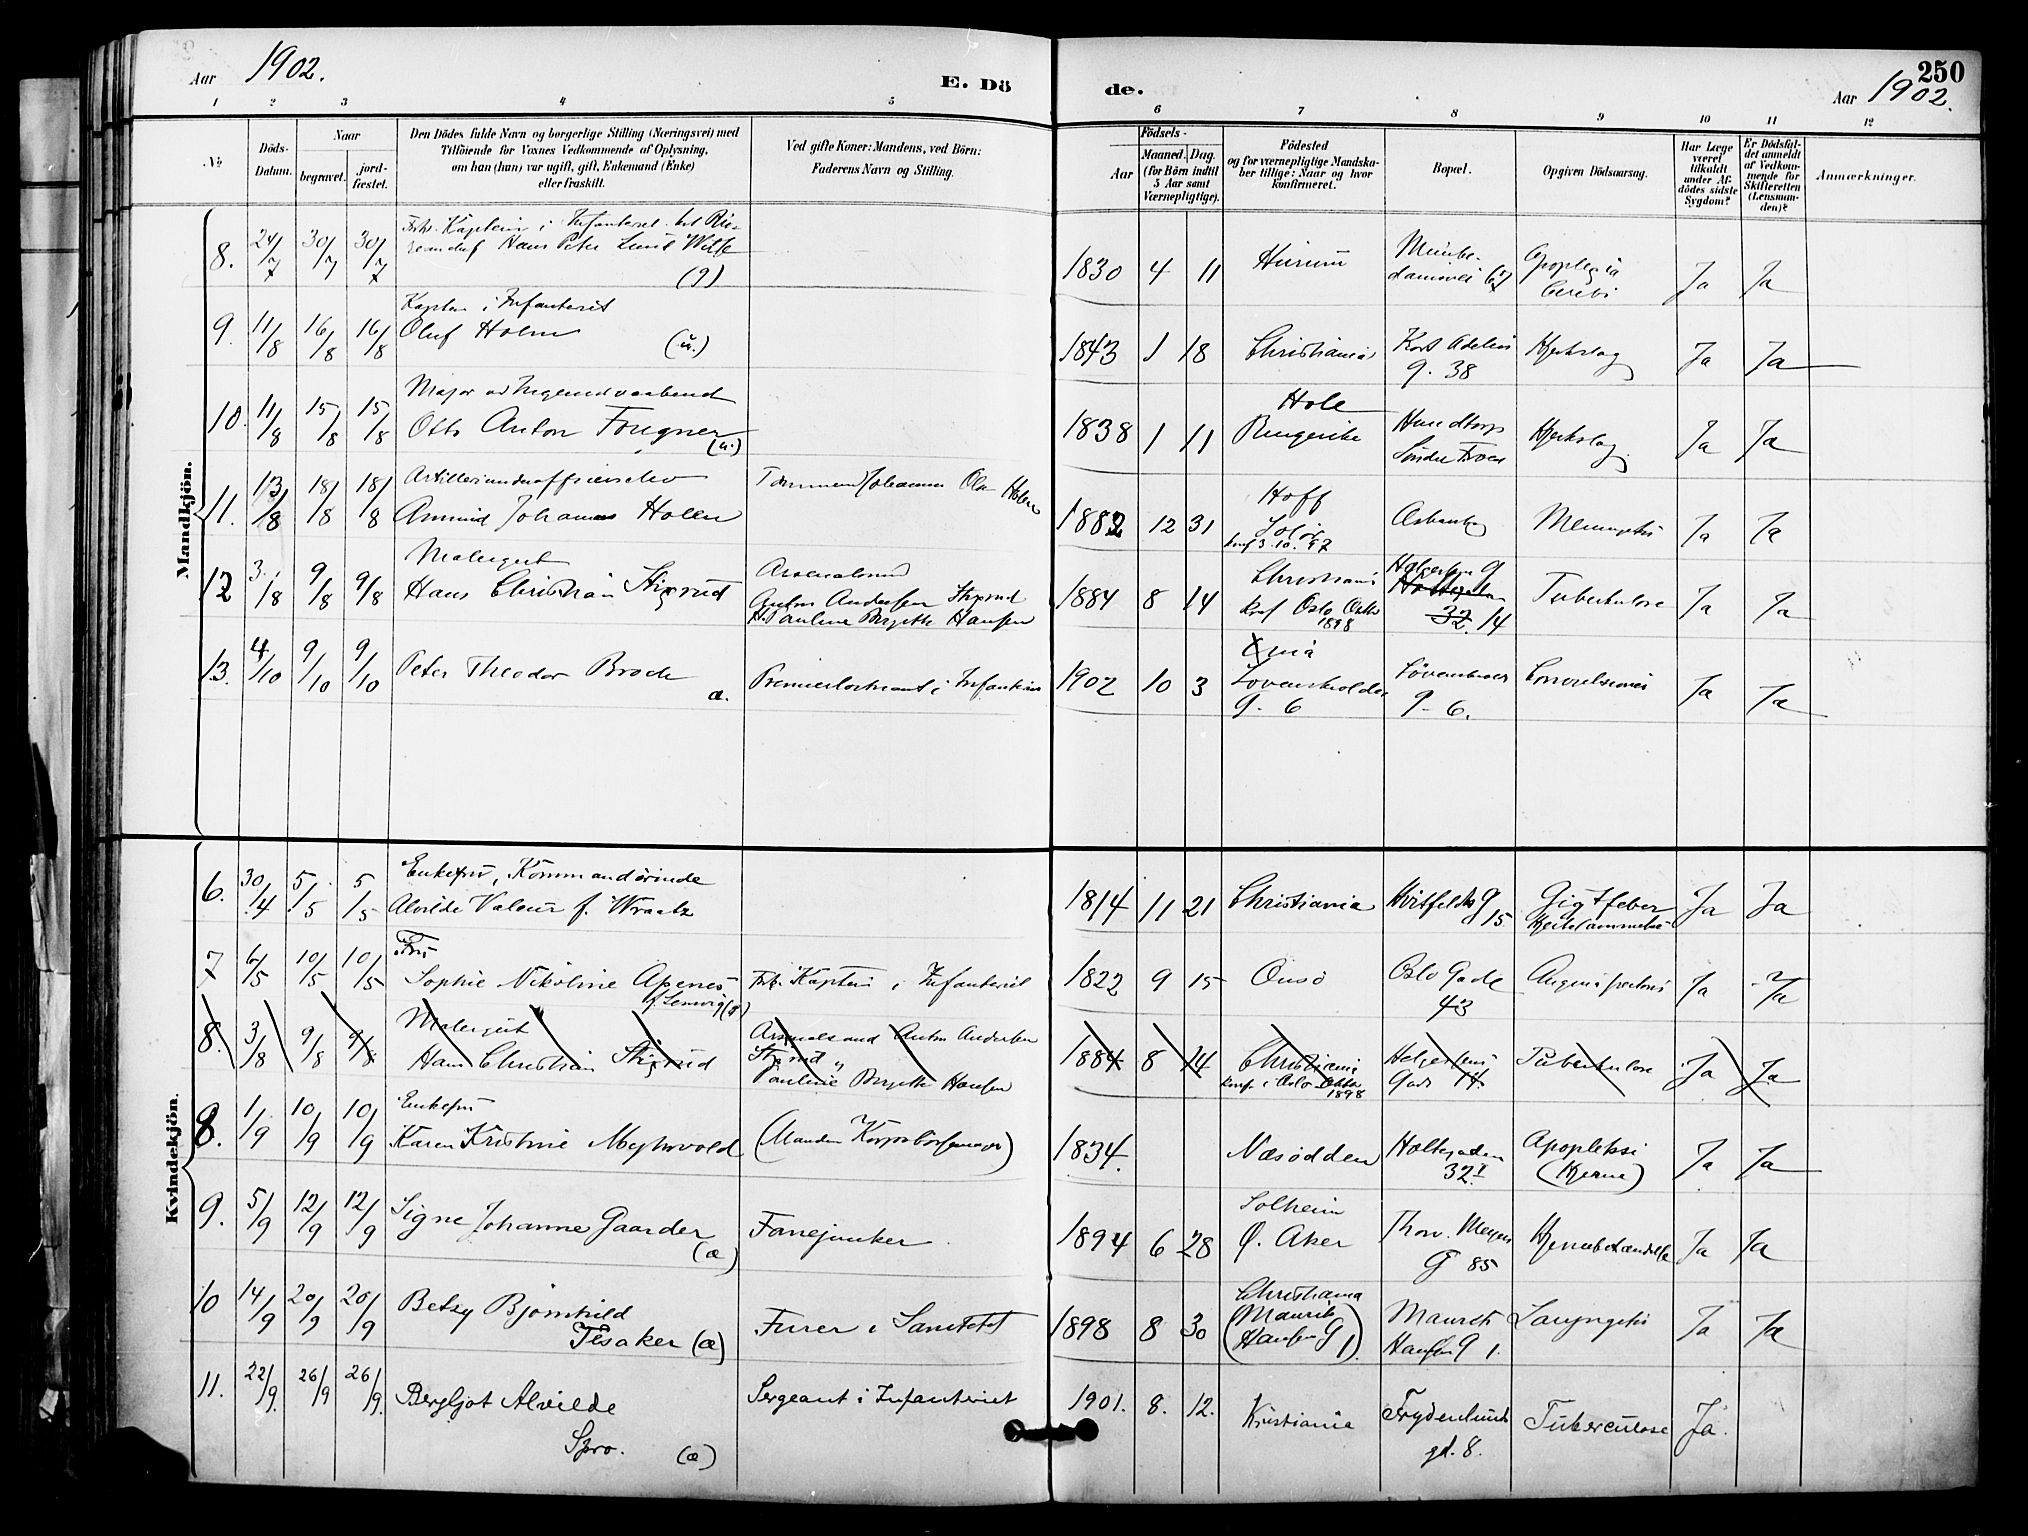 Aar 1902.
E. Dö
de.
250
Aar 1902.
1 2 3 4 5 6 7 8 9 10 11 12
No
Döds-
Datum.
Naar
begravet.
jord-
fæstet.
Den Dödes fulde Navn og borgerlige Stilling (Næringsvei) med
Tilföiende for Voxnes Vedkommende af Oplysning,
om han (hun) var ugift, gift, Enkemand (Enke)
eller fraskilt.
Ved gifte Koner: Mandens, ved Börn:
Faderens Navn og Stilling.
Födsels-
Aar
Maaned.
Dag.
(for Börn indtil
5 Aar samt
Værnepligtige).
Födested
og for værnepligtige Mandska-
ber tillige: Naar og hvor
konfirmeret.
Bopæl.
Opgiven Dödsaarsag.
Har Læge
været
tilkaldt
under Af-
dödes sidste
Sygdom?
Er Dödsfal-
det anmeldt
af Vedkom-
mende for
Skifteretten
(Lensman-
den)?
Anmærkninger.
Mandkjön.
8. 24/7 30/7 30/7
Kaptein i Infanteriet
Hans Peter
(g)
1830 4 11 Hurum
Apoplexia
Cerebri
Ja Ja
9. 11/8 16/8 16/8
Kaptein i Infanteriet
Oluf Holm (u.)
1843 1 18 Christiania
Kort Adelers
g. 38
Hjerteslag Ja Ja
10. 11/8 15/8 15/8
Major
Otto Anton Fougner (u.)
1838 1 11
Hole
Ringerike
Hundtorp
Søndre Fron
Hjerteslag Ja Ja
11. 13/8 18/8 18/8
Johannes Holen
Johannes Olsen Holen
1882 12 31
Hoff
Solør
konf 3.10.97
Ja Ja
12 3/8 9/8 9/8
Malergut
Hans Christian Stigsrud
Anton Andersen Stigsrud
H. Pauline Birgitte Hansen
1884 8 14
Christiania
konf Oslo Oktbr
1898
Helgesens g
32. 14
Tuberkulose Ja Ja
13. 4/10 9/10 9/10
Peter Theodor Broch
æ.
Premierløitnant i Infanteriet
1902 10 3
Xania
Løvenskiolds
g. 6
g. 6.
Convulsiones Ja Ja
Kvindekjön.
6. 30/4 5/5 5/5
Enkefru, Kommandørinde
Alvilde Valeur f. Wraatz
1814 11 21 Christiania Hvitfeldts g 15.
Gigtfeber
Ja Ja
7 6/5 10/5 10/5
Fru
Sophie Nikoline Apenes
f. Lemvig (g)
Kaptein i Infanteriet
1822 9 15 Onsø
Oslo Gade
43
Angina pectoris Ja Ja
8. 3/8 9/8 9/8
Malergut
Hans Christian Stigsrud
Anton Andersen
Stigsrud
Pauline Birgitte Hansen
1884 8 14
Christiania
konf. i Oslo Oktbr
1898
Helgesens
Gade 14.
Tuberkulose Ja Ja
8. 1/9 10/9 10/9
Enkefru
Karen Kristine
1834. Næsødden
Holtegaden
32 I
Apopleksi
(Hjerne)
Ja Ja
9. 5/9 12/9 12/9
Signe Johanne Gaarder
(æ)
Fanejunker
1894 6 28
Solheim
Ø. Aker
Thorv. Meyers
G 85
Hjernebetændelse Ja Ja
10 14/9 20/9 20/9
Betzy Bjørnhild
Tesaker (æ)
Furer i Sanitetet
1898 8 30
Christiania
(Maurits
Hansens G 1)
Maurits
Hansens G 1.
Laryngitis Ja Ja
11. 22/9. 26/9 26/9.
Bergljot Alvilde
Spro. (æ)
Sergeant i Infanteriet
1901. 8. 12. Kristiania
Frydenlunds
gd. 8.
Tuberculose Ja.